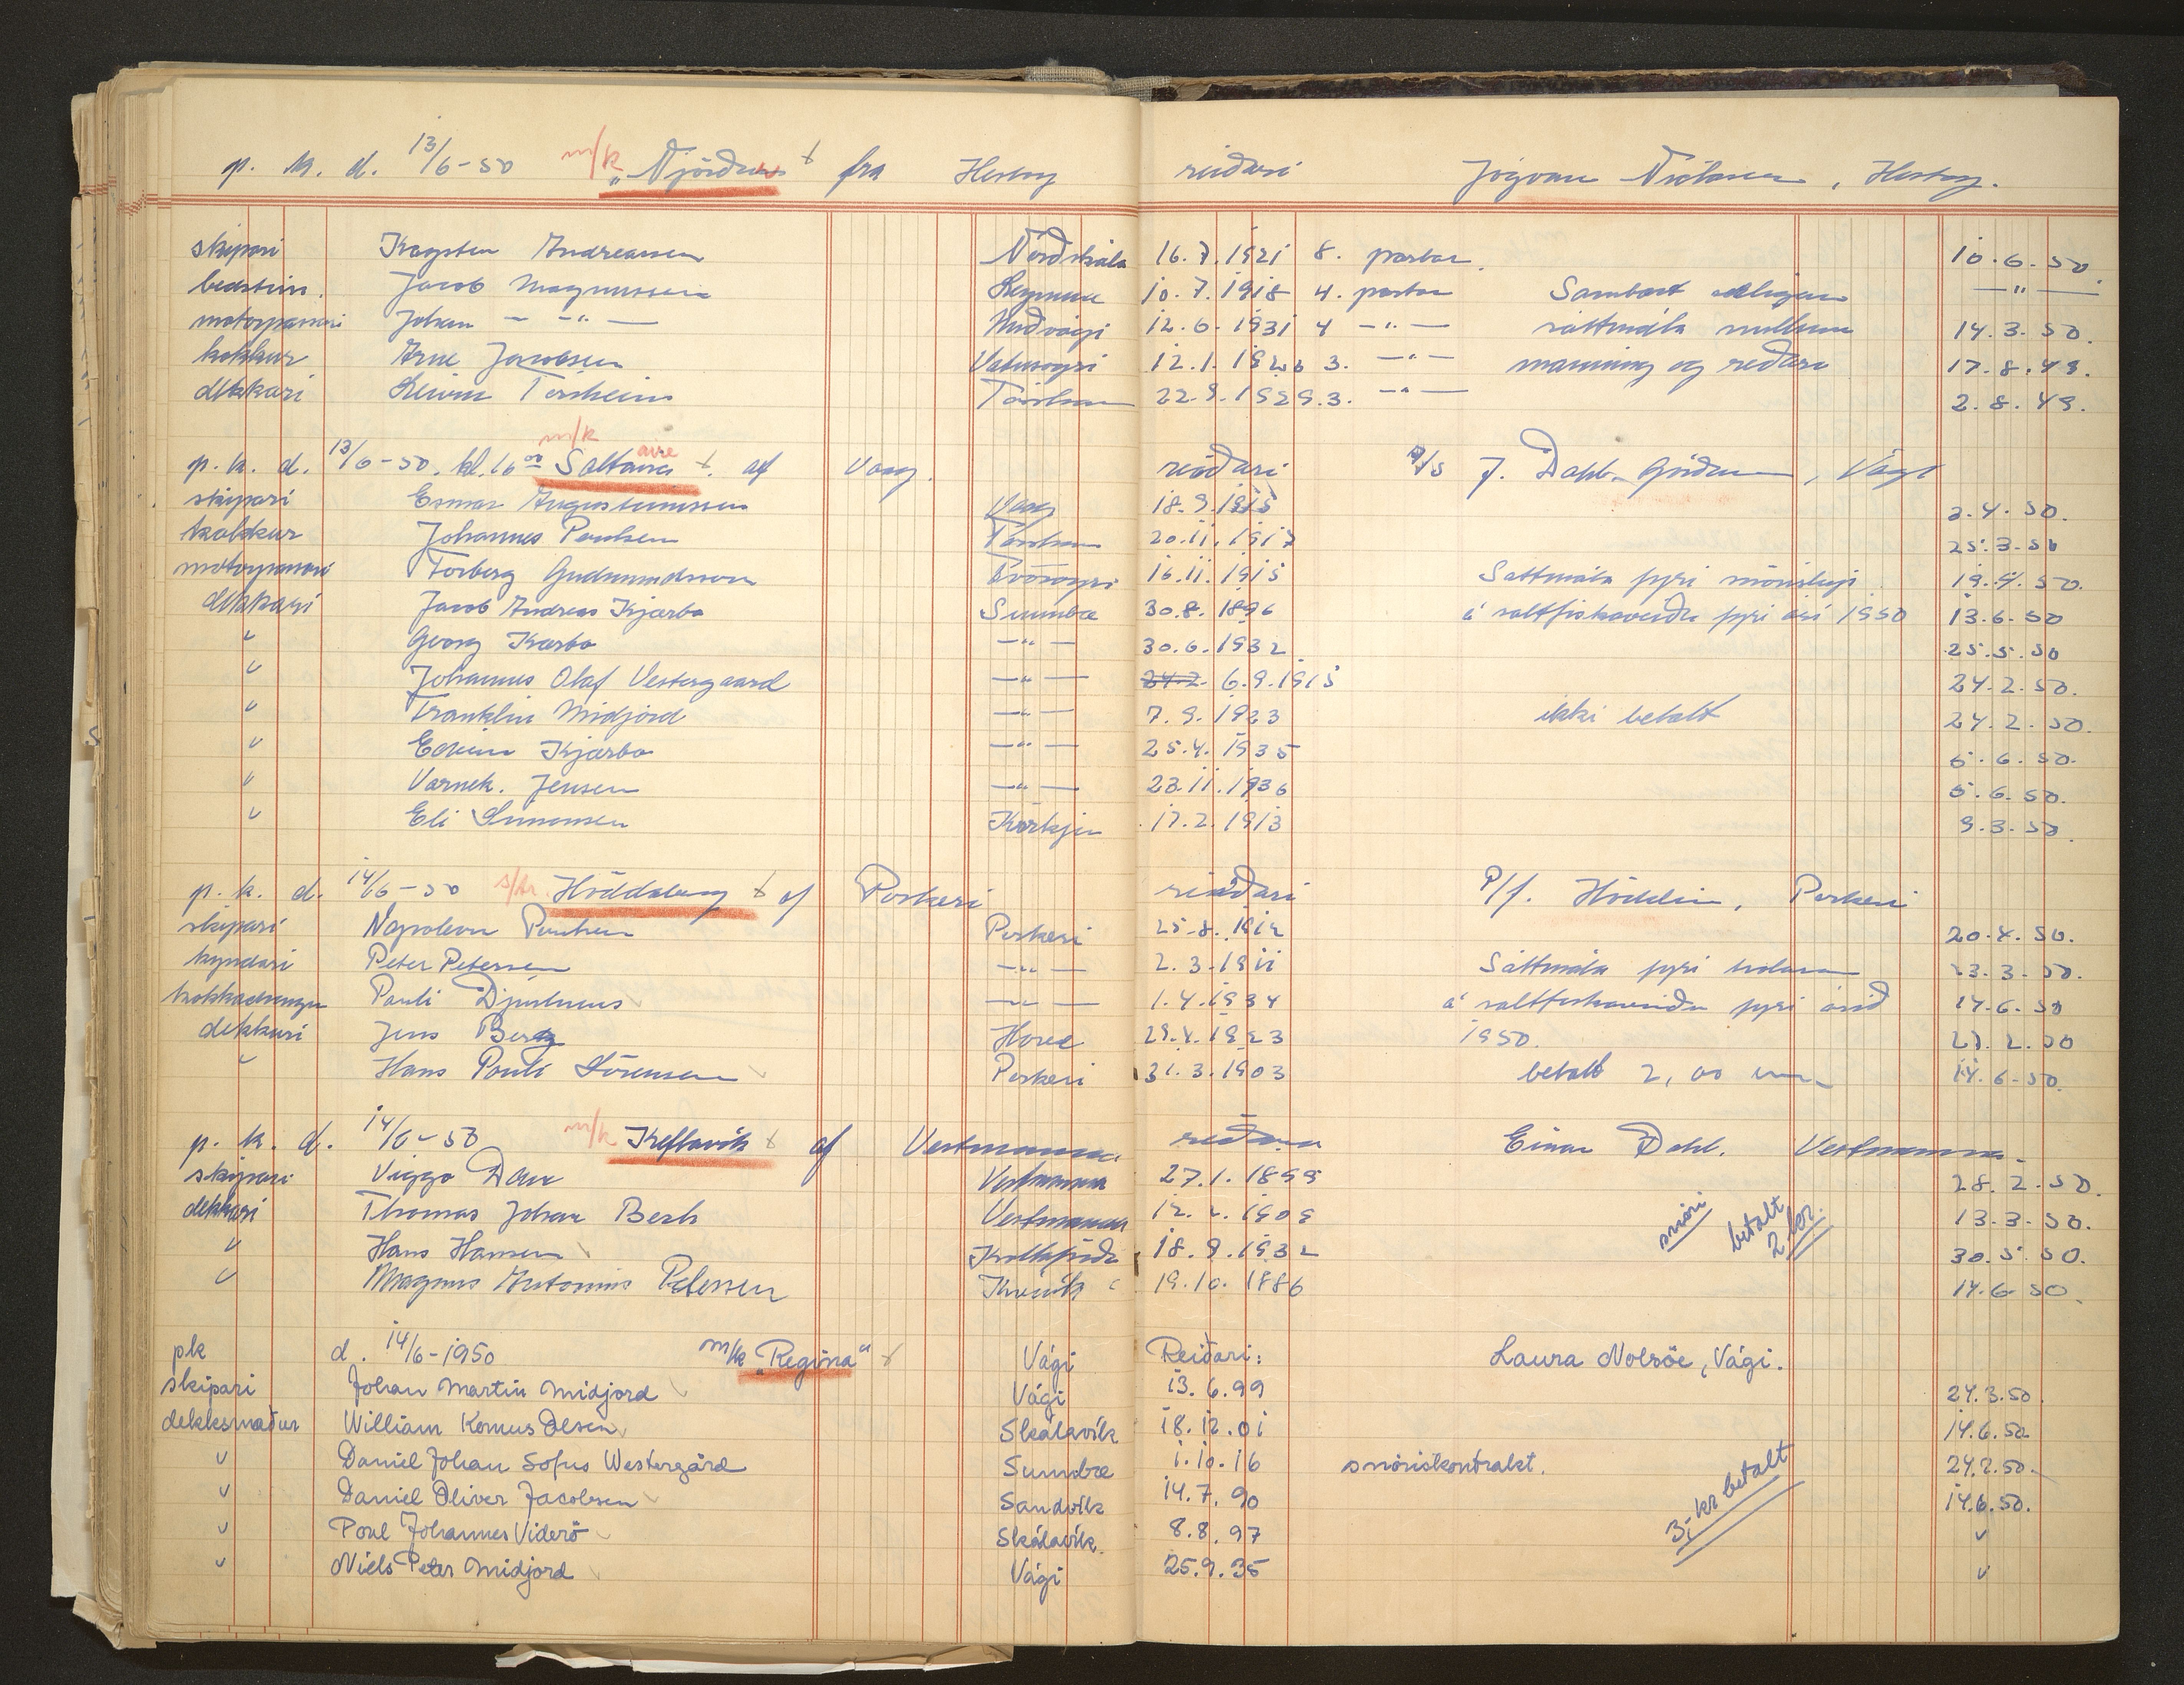 p. k. d. 13/6-50 m/k „Njörður" fra Hestoy reiðari Jógvan Niclasen, Hestoy.
skipari Karsten Andreasen Norðskála 16.7.1921 8. partar 10.6.50.
bestim. Jacob Magnussen 10.7.1918 4. partar Sambært -"-
motorpassari Johan -"- Miðvági 12.6.1931 4 -"- sáttmála millum 14.3.50.
kokkur Arne Jacobsen Vatnsoyri 12.1.1926 3. -"- manning og reiðara 17.8.49.
dekkari Torsheim Tórshavn 22.9.1929. 3. -"- 2.8.49.
p. k. d. 13/6-50. kl. 16 00 m/k Saltaire af Vaag reiðari J. Dahl, Vági
skipari Esmar Augustinussen Vaag 18.9.1915 2.4.50.
kokkur Johannes Poulsen Tórshavn 20.11.1917 25.3.50
motorpassari Torberg Gudmundsson 16.11.1915 Sáttmála fyri snöriskip 19.4.50.
dekkari Jacob Andreas Kjærbo Sumbæ 30.8.1896 á saltfiskaveiðu fyri árið 1950 13.6.50
" Georg Kærbo -"- 30.6.1932 25.5.50
" Johannus Olaf Vestergaard -"- 6.9.1915 24.2.50.
" Franklin Midjord -"- 7.9.1923 ikki betalt 24.2.50.
" Edvin Kjærbo -"- 25.4.1935 5.6.50.
" Varnek. Jensen -"- 23.11.1936 5.6.50.
" Eli Simonsen 17.2.1913 9.3.50.
p. k. d. 14/6-50 s/tr Höddaberg af Porkeri reiðari P/f. Höddin, Porkeri
skipari Napoleon Poulsen Porkeri 25.8.1912 20.4.50.
kyndari Peter Petersen -"- 2.3.1911 Sáttmála fyri trolara 23.3.50.
kokkadrongur Pauli Djurhuus -"- 1.4.1934 á saltfiskaveiðu fyri árið 14.6.50
dekkari Jens Berg Hove 29.4.1923 1950.
" Hans Pauli Sörensen Porkeri 31.3.1903 betalt 2,00 14.6.50.
p. k. d. 14/6-50 m/k Keflavík af Vestmanna reiðari Einar Dahl. Vestmanna
skipari Viggo Dam Vestmanna 27.1.1899 28.2.50.
dekkari Thomas Johan Berh Vestmanna 12.2.1909 snöri betalt 2 kr. 13.3.50.
" Hans Hansen Kollafirði 18.9.1932 30.5.50.
" Magnus Antonius Petersen Kvívík 19.10.1886 14.6.50.
pk d. 14/6-1950 m/k „Regina" Vági Reiðari: Laura Nolsöe, Vági.
skipari Johan Martin Midjord Vági 13.6.99 24.3.50.
dekksmaður William Komus Olsen Skálavík 18.12.01 14.6.50
" Daniel Johan Sofus Westergård Sumbæ 1.10.16 snöriskontrakt. 24.2.50.
" Daniel Oliver Jacobsen Sandvík 14.7.90 3,- kr betalt 14.6.50.
" Poul Johannes Viderö Skálavík. 8.8.97 "
" Niels Peter Midjord Vági 25.9.35 "